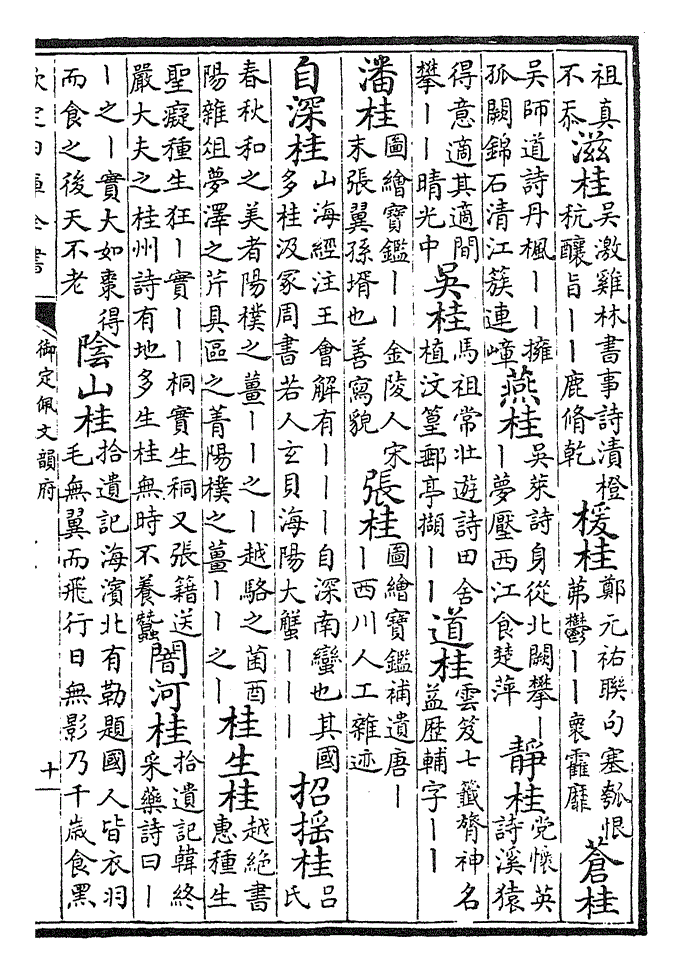 祖真
不忝
滋桂
吳激雞林書事詩漬橙
秔釀旨——鹿脩乾
楥桂
鄭元祐聯句塞瓠恨
苐鬱——裛靃靡
蒼桂
吳師道詩丹楓——擁
孤闕錦石清江簇連嶂
燕桂
吳萊詩身從北闕攀—
—夢壓西江食楚萍
靜桂
党懷英
詩溪猿
得意適其適間
攀——晴光中
吳桂
馬祖常壯遊詩田舍
植汶篁郵亭擷——
道桂
雲笈七籤膂神名
益歴輔字——
潘桂
圖繪寶鑑——金陵人宋
末張翼孫壻也善寫貌
張桂
圖繪寶鑑補遺唐—
—西川人工雜迹
自深桂
山海經注王會解有———自深南蠻也其國
多桂汲冢周書若人玄貝海陽大蟹———
招揺桂
吕
氏
春秋和之美者陽樸之薑——之—越駱之菌酉
陽雜俎夢澤之芹具區之菁陽樸之薑——之—
桂生桂
越絶書
惠種生
聖癡種生狂—實——桐實生桐又張籍送
嚴大夫之桂州詩有地多生桂無時不養蠶
闇河桂
拾遺記韓終
采藥詩曰—
—之—實大如棗得
而食之後天不老
陰山桂
拾遺記海濱北有勒題國人皆衣羽
毛無翼而飛行日無影乃千歲食黑
欽定四庫全書
御定佩文韻府
十一